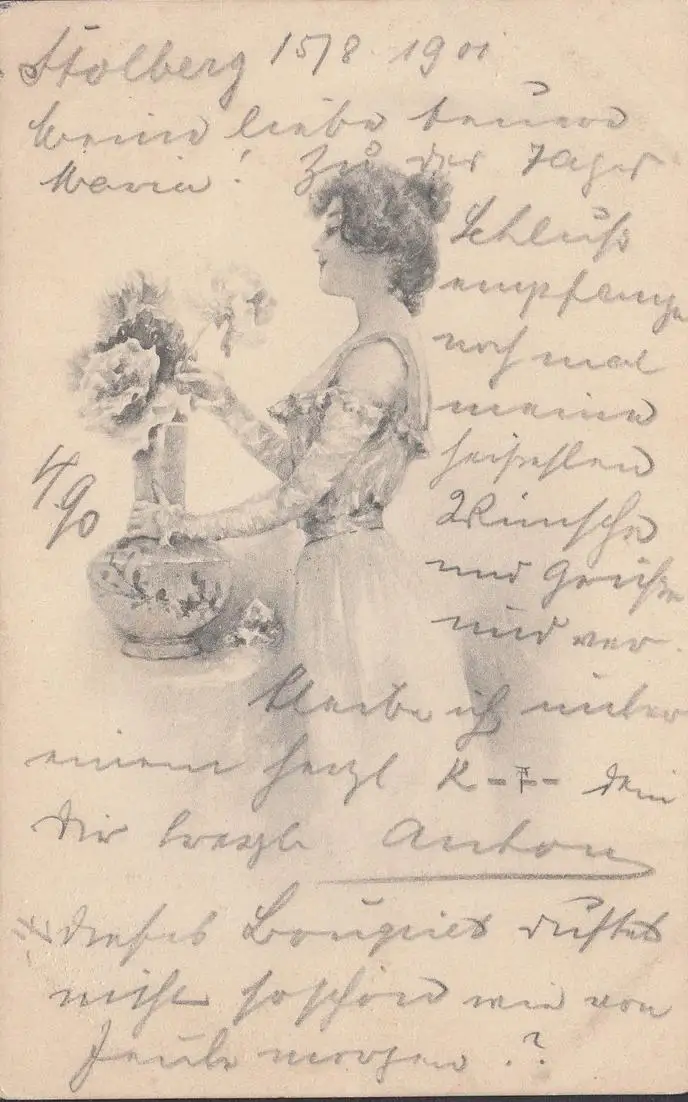 Stolberg 15/8 1901
Meine liebe teuere
Maria! Zu der
Schluß
empfange
noch mal
meine
heißesten
Wünsche
und Grüße
und ver-
bleibe ich unter
einem herzl K-- dein
Dir Anton
dieses Bouquet duftet
nicht so schön wie von
Heute morgen.?